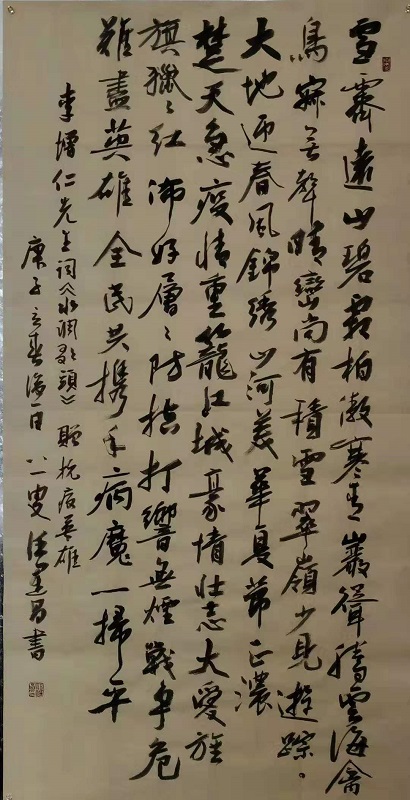 雪霽遠山碧柏傲寒青巖聳騰雲海禽
鳥寂無聲晴巒尚有積雪翠嶺少見遊踪。
大地迎春風錦綉山河美華夏節正濃
楚天急疫情重籠江城豪情壯志大愛旌
旗獵〻紅佈好層〻防控打響無煙戰爭危
難盡英雄全民共携手病魔一掃平
李增仁先生词《水调歌頭》贈抗疫英雄
庚子之春 八一叟書